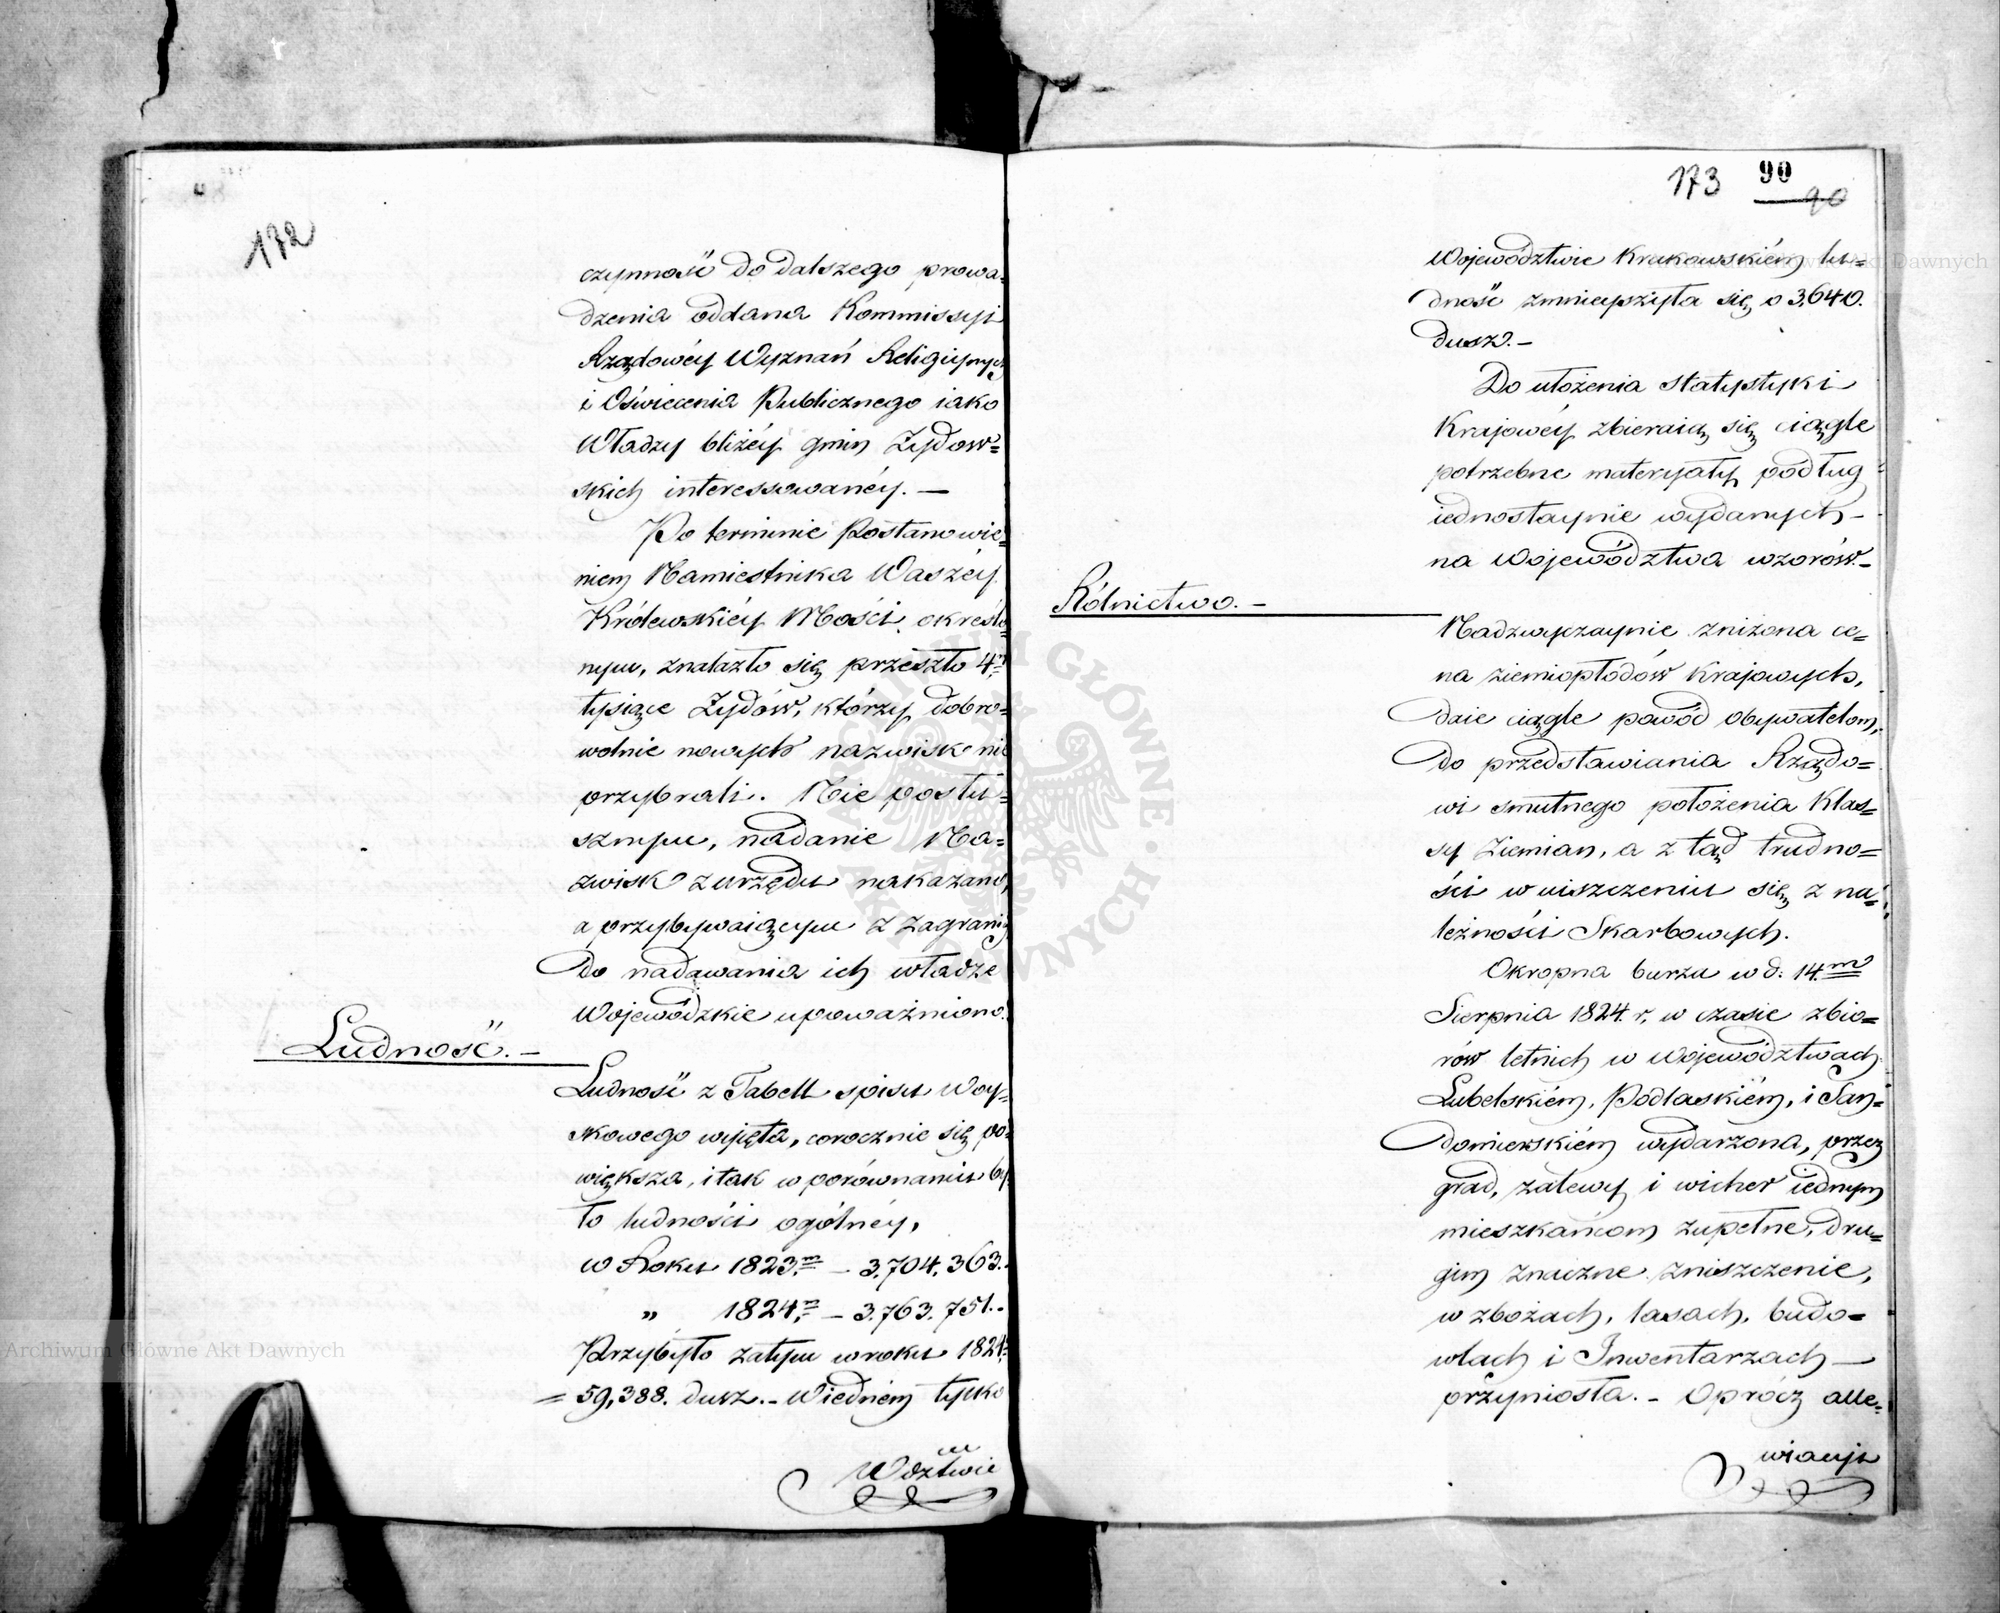 172
czynność do dalszego prowa=
dzenia oddana Kommissyi
Rządowéy Wyznań Religiynych
i Oświecenia Publicznego iako
Władzy bliżéy gmin Żydow=
skich interessowanéy. —
Po terminie Postanowie=
niem Namiestnika Waszéy
Królewskiéy Mości określo=
nym, znalazło się przeszło 4.m
tysiące Żydów, którzy dobro=
wolnie nowych nazwisk nie
przybrali. Nie posłu=
sznym, nadanie Na=
zwisk z urzędu nakazano,
a przybywaiącym z Zagranicy
do nadawania ich władze
Wojewódzkie upoważniono.
Ludność. —
Ludność z Tabell spisu Woy=
skowego wyięta, corocznie się po=
większa, i tak w porównaniu by=
ło ludności ogólnéy,
w Roku 1823.m — 3,704,363.
„ 1824.m — 3,763,751.
Przybyło zatym w roku 1824.m
= 59,388. dusz. — W iedném tylko
Wdztwie
173 90
90
Województwie Krakowskiém lu=
dność zmnieyszyła się o 3,640.
dusz. —
Do ułożenia statystyki
Krajowéy zbieraią się ciągle
potrzebne materyały podług
iednostaynie wydanych
na Województwa wzorów. —
Rólnictwo. —
Nadzwyczaynie zniżona ce=
na ziemiopłodów Krajowych,
daie ciągle powód obywatelom,
do przedstawiania Rządo=
wi smutnego położenia Klas=
sy Ziemian, a z tąd trudno=
ści w uiszczeniu się z na=
leżności Skarbowych.
Okropna burza w d: 14.m
Sierpnia 1824. r. w czasie zbio=
rów letnich w Województwach
Lubelskiém, Podlaskiém, i San=
domierskiém wydarzona, przez
grad, zalewy i wicher iednym
mieszkańcom zupełne, dru=
gim znaczne zniszczenie,
w zbożach, lasach, budo=
wlach i Inwentarzach —
przyniosła. — Oprócz alle=
wiacyi
Archiwum Główne Akt Dawnych
ARCHIWUM GŁÓWNE AKT DAWNYCH